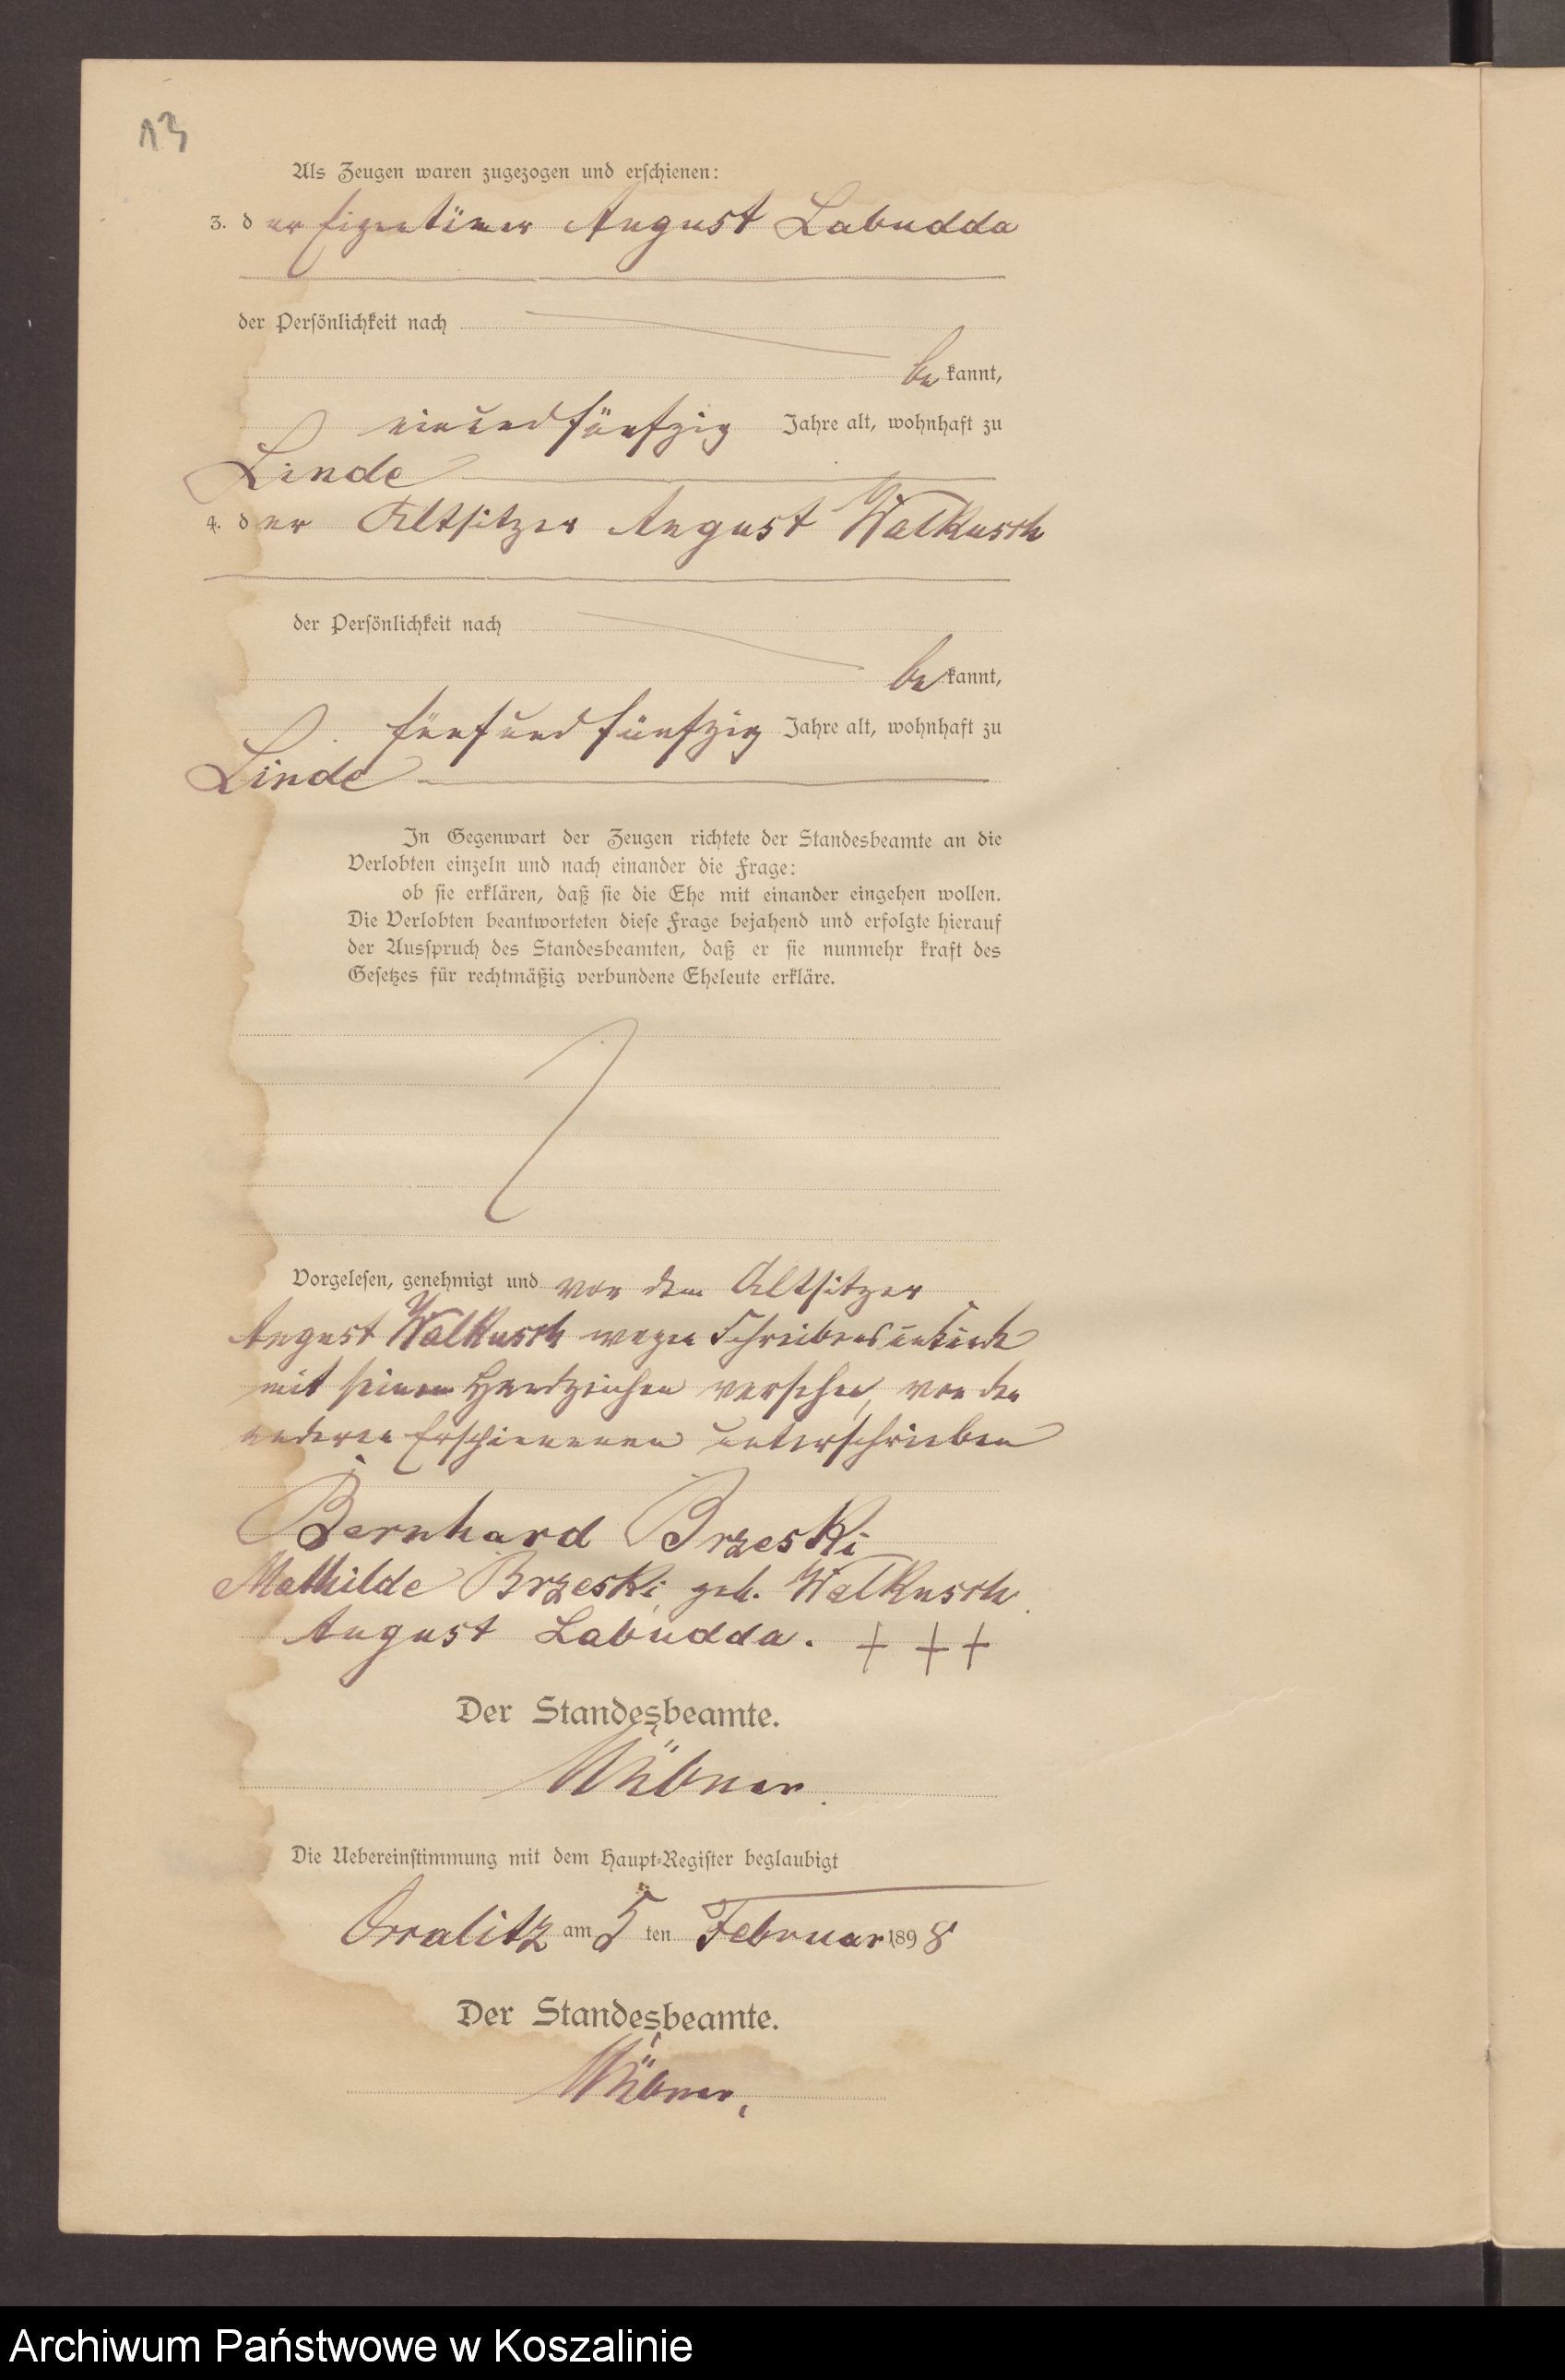 13
Als Zeugen waren zugezogen und erschienen:
3. der Eigentümer August Labudda
der Persönlichkeit nach
bekannt,
einundfünfzig Jahre alt, wohnhaft zu
Linde
4. der Altsitzer August Walkusch
der Persönlichkeit nach
bekannt,
fünfundfünfzig Jahre alt, wohnhaft zu
Linde
In Gegenwart der Zeugen richtete der Standesbeamte an die
Verlobten einzeln und nach einander die Frage:
ob sie erklären, daß sie die Ehe mit einander eingehen wollen.
Die Verlobten beantworteten diese Frage bejahend und erfolgte hierauf
der Ausspruch des Standesbeamten, daß er sie nunmehr kraft des
Gesetzes für rechtmäßig verbundene Eheleute erkläre.
Vorgelesen, genehmigt und von dem Altsitzer
August Walkusch wegen Schreibens
mit seinem Handzeichen versehen, von den
anderen Erschienenen unterschrieben
Bernhard Brzeski
Mathilde Brzeski, geb. Walkusch.
August Labudda. + + +
Der Standesbeamte.
Die Uebereinstimmung mit dem Haupt-Register beglaubigt
am 5 ten Februar 1898
Der Standesbeamte.
Archiwum Państwowe w Koszalinie